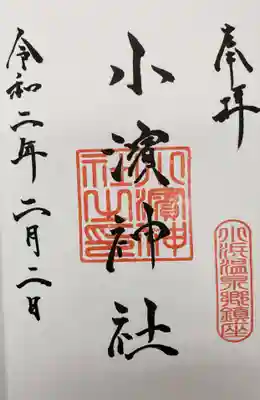 奉拝
小濱神社
小濱神社之印
小浜温泉郷鎮座
令和二年二月二日